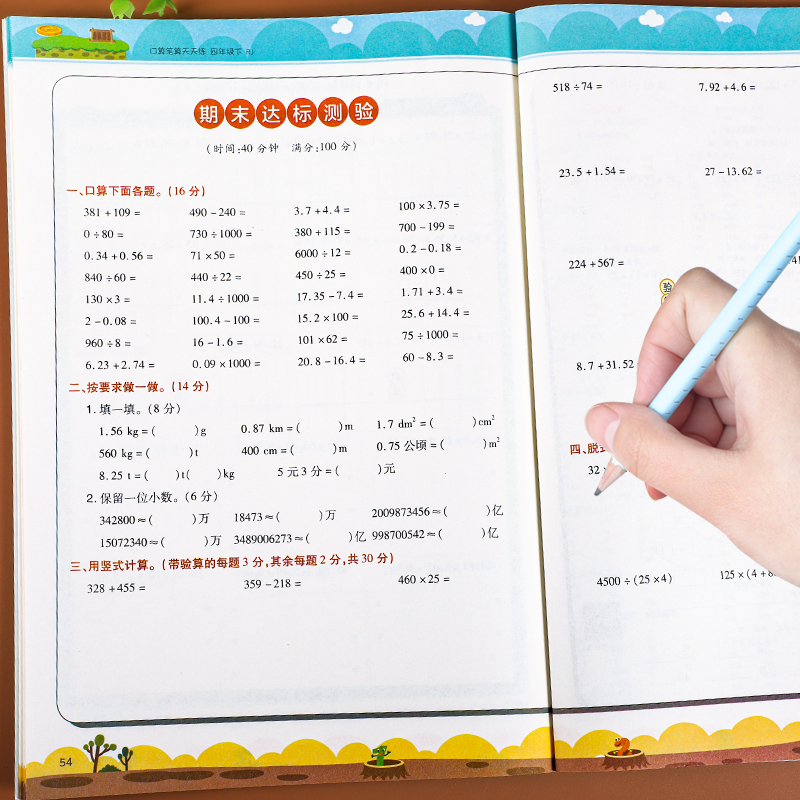 口算笔算天天练 四年级下 RJ
期末达标测验
(时间:40 分钟 满分:100 分)
一、口算下面各题。(16 分)
381 + 109 = 490 - 240 = 3.7 + 4.4 = 100 × 3.75 =
0 ÷ 80 = 730 ÷ 1000 = 380 + 115 = 700 - 199 =
0.34 + 0.56 = 71 × 50 = 6000 ÷ 12 = 0.2 - 0.18 =
840 ÷ 60 = 440 ÷ 22 = 450 ÷ 25 = 400 × 0 =
130 × 3 = 11.4 ÷ 1000 = 17.35 - 7.4 = 1.71 + 3.4 =
2 - 0.08 = 100.4 - 100 = 15.2 × 100 = 25.6 + 14.4 =
960 ÷ 8 = 16 - 1.6 = 101 × 62 = 75 ÷ 1000 =
6.23 + 2.74 = 0.09 × 1000 = 20.8 - 16.4 = 60 - 8.3 =
二、按要求做一做。(14 分)
1. 填一填。(8 分)
1.56 kg = ( )g 0.87 km = ( )m 1.7 dm² = ( )cm²
560 kg = ( )t 400 cm = ( )m 0.75 公顷 = ( )m²
8.25 t = ( )t( )kg 5 元 3 分 = ( )元
2. 保留一位小数。(6 分)
342800 ≈ ( )万 18473 ≈ ( )万 2009873456 ≈ ( )亿
15072340 ≈ ( )万 3489006273 ≈ ( )亿 998700542 ≈ ( )亿
三、用竖式计算。(带验算的每题 3 分,其余每题 2 分,共 30 分)
328 + 455 = 359 - 218 = 460 × 25 =
54
518 ÷ 74 = 7.92 + 4.6 =
23.5 + 1.54 = 27 - 13.62 =
224 + 567 =
验
8.7 + 31.52
四、脱
32
4500 ÷ (25 × 4) 125 × (4 + 8